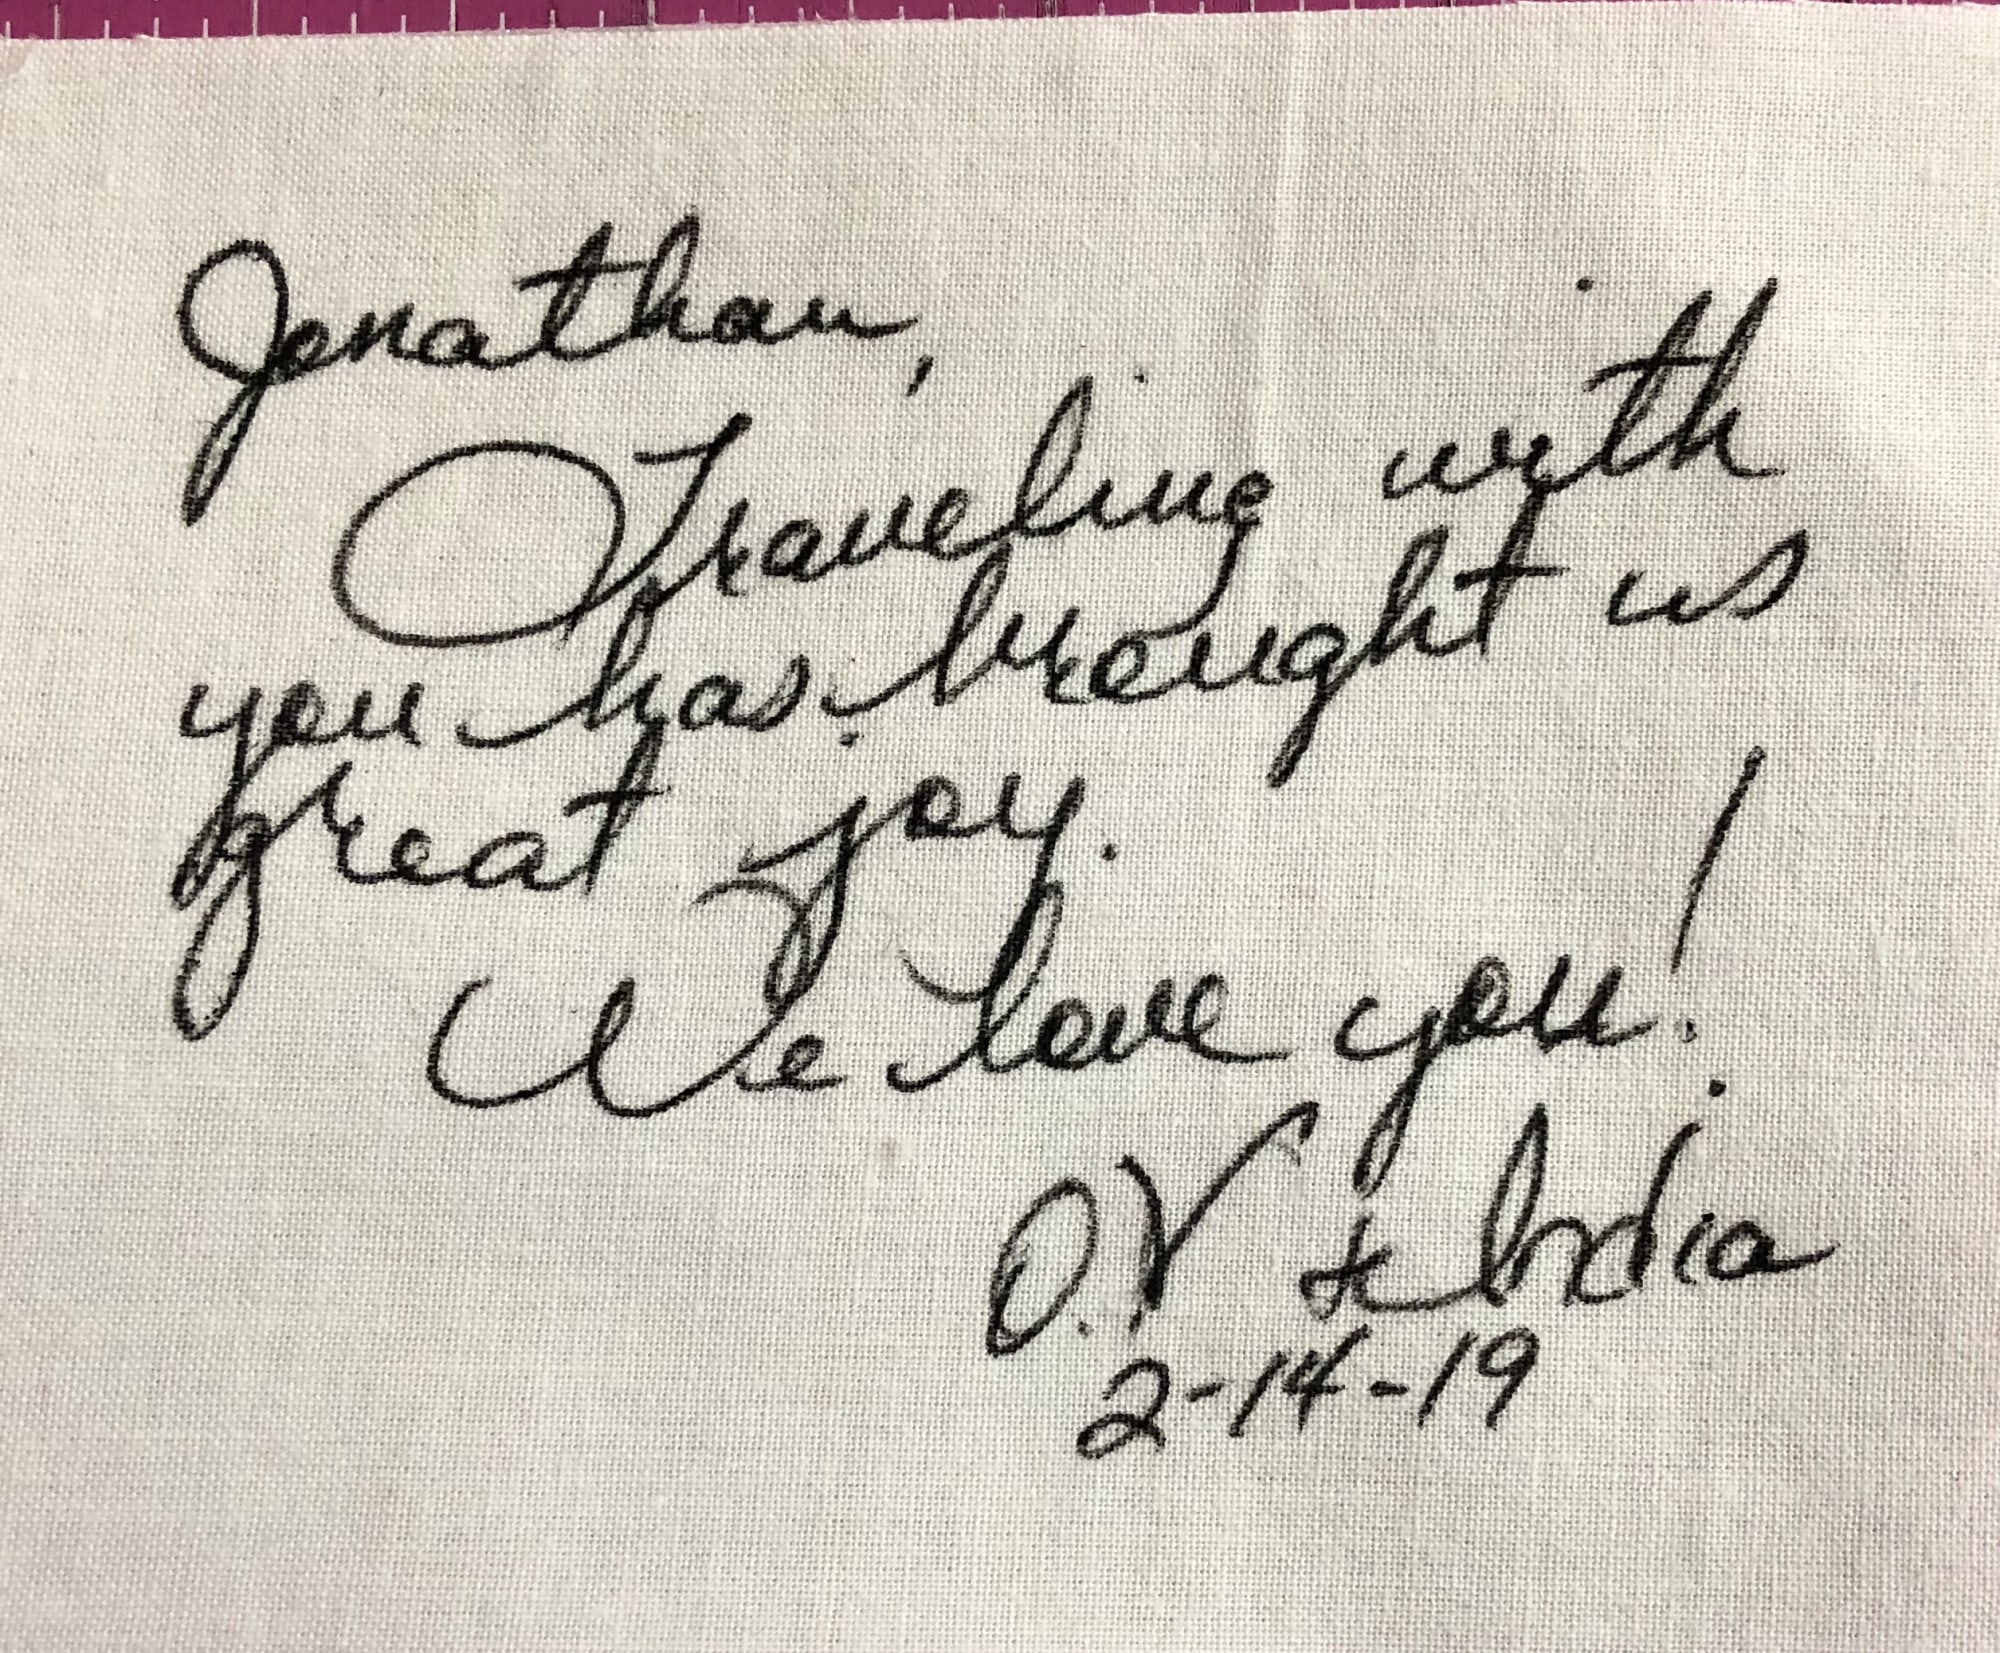 Jonathan,
Traveling with
you has brought us
great joy.
We love you!
O.V & India
2-14-19